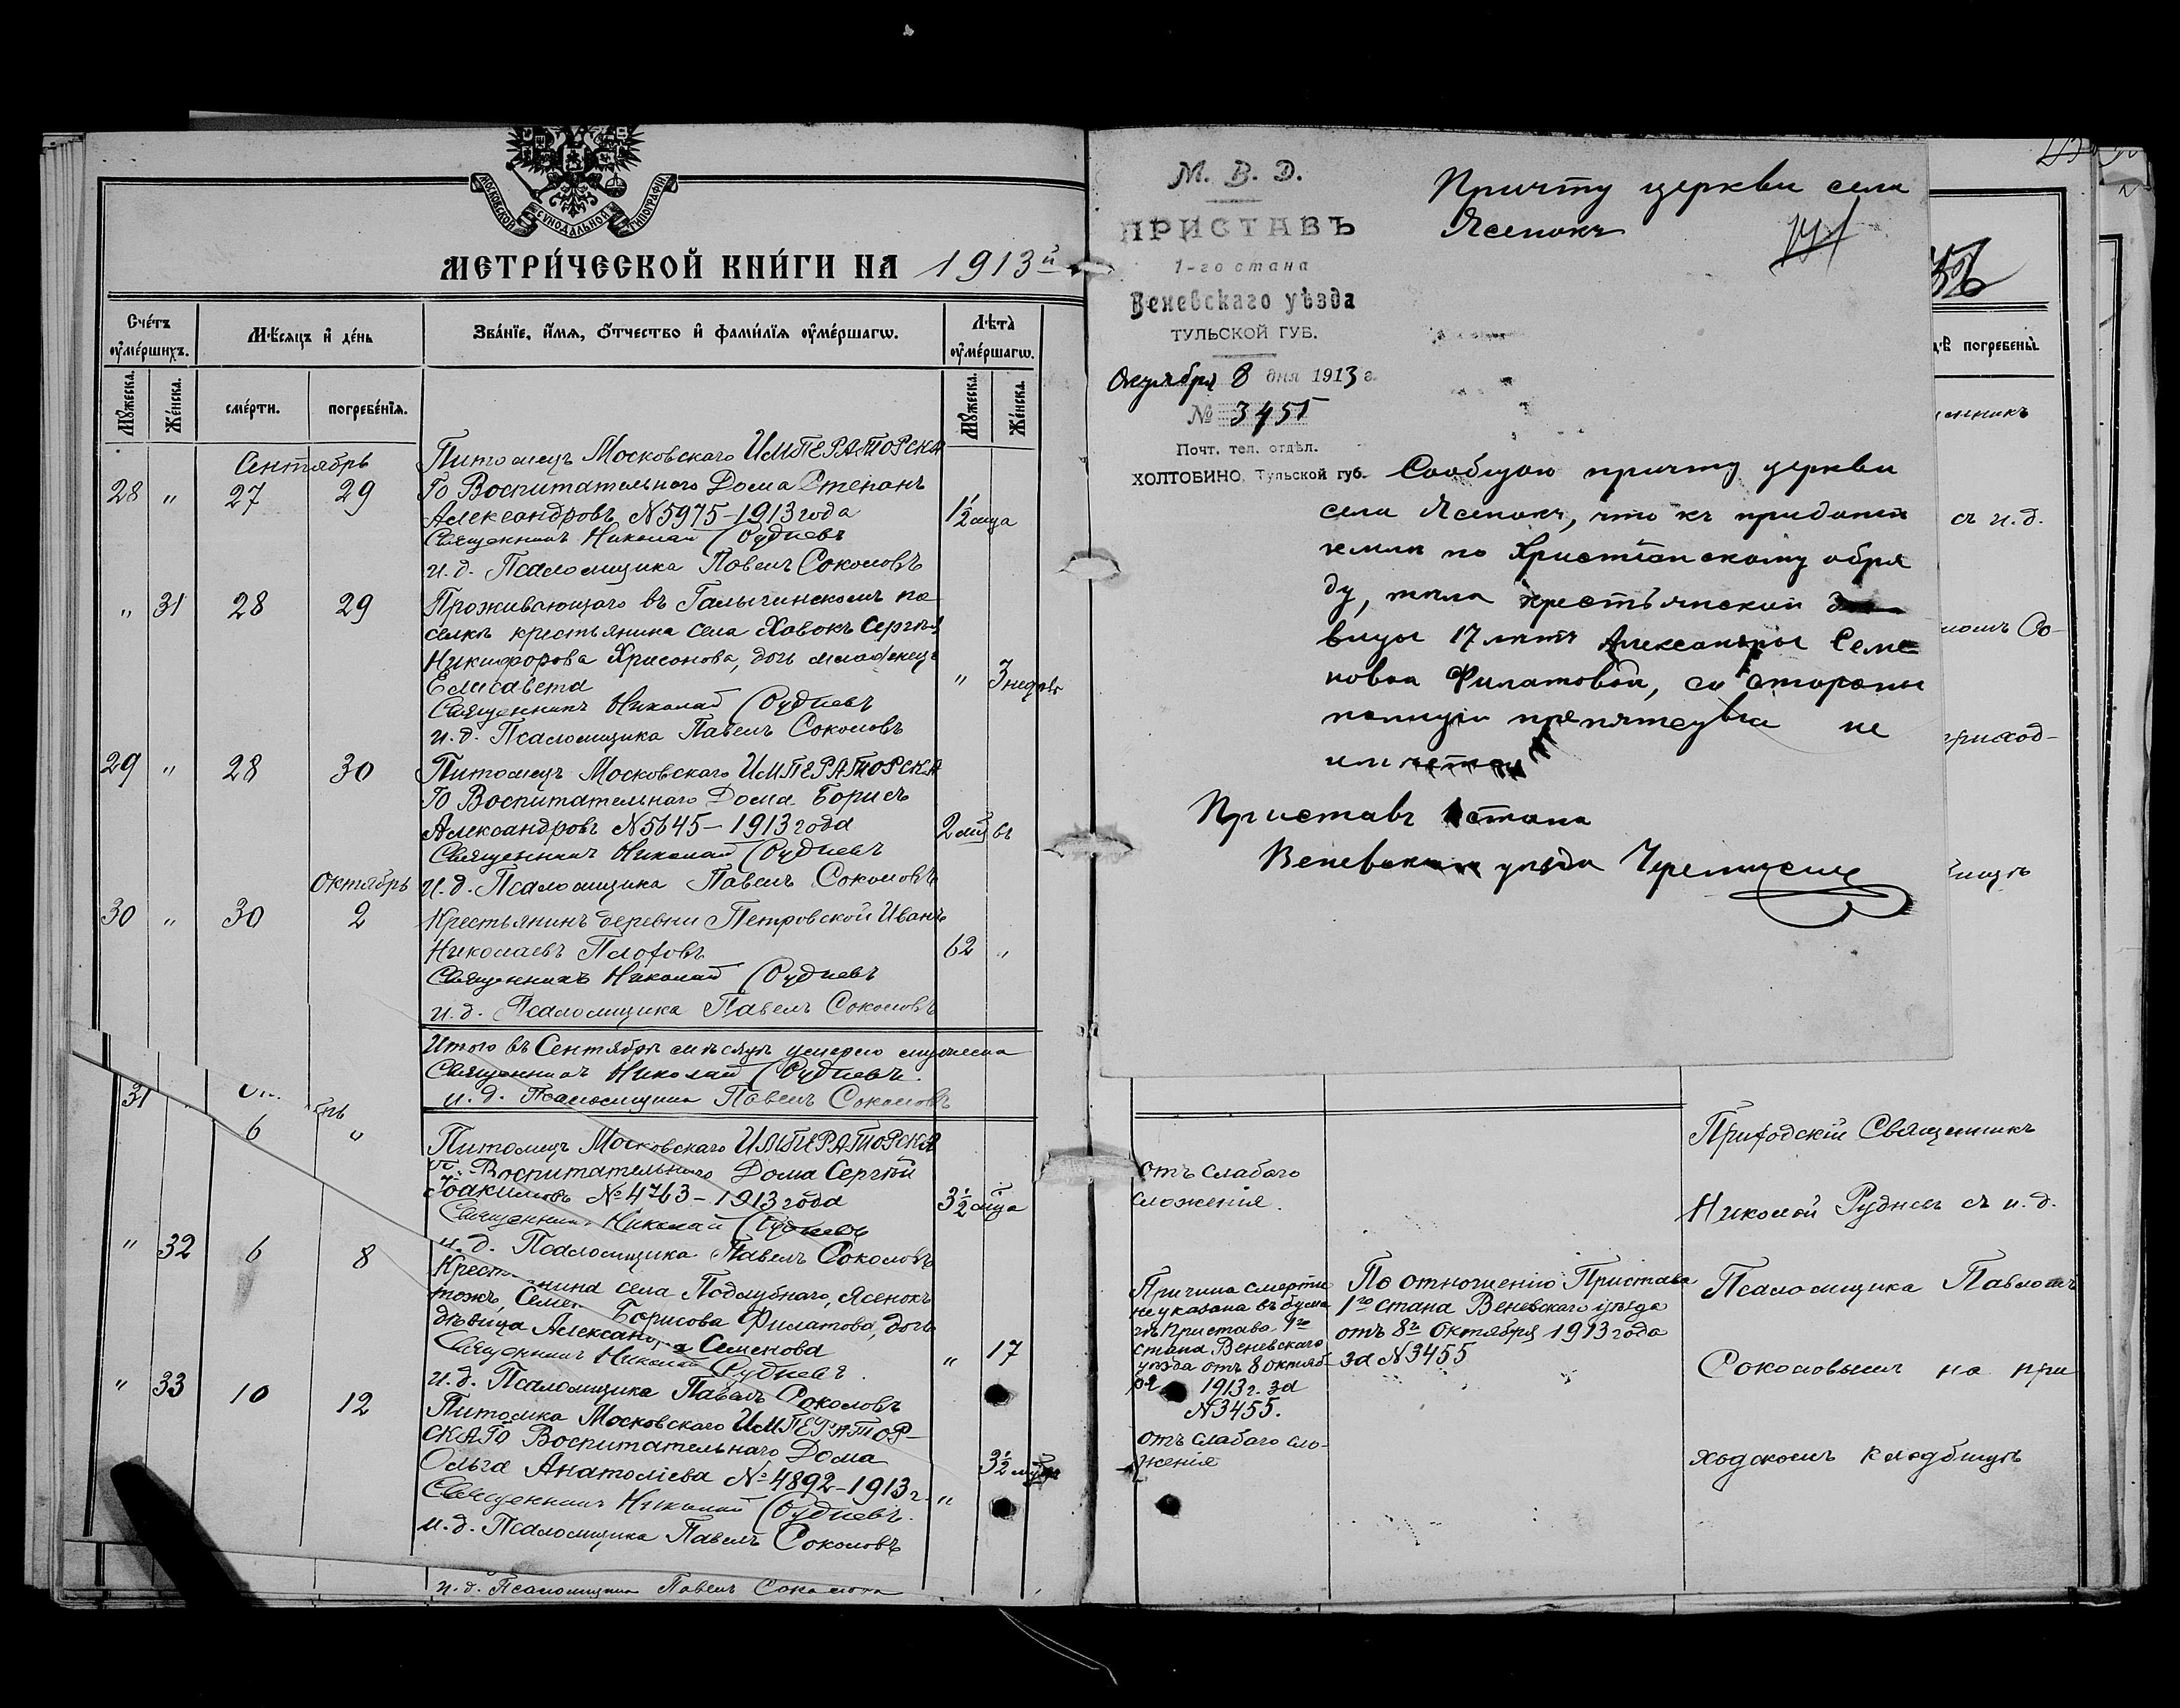 МОСКОВСКОЙ СѴНОДАЛЬНОЙ ТИПОГРАФІИ.
МЕТРИ́ЧЕСКОЙ КНИ́ГИ НА 1913й
Сче́тъ оу҆ме́ршихъ.
Мѣ́сяцъ и҆ де́нь
Зва́нїе, и҆́мя, ѻ҆́тчество и҆ фами́лїя оу҆ме́ршагѡ.
Лѣ́та оу҆ме́ршагѡ.
Мꙋ́жеска.
Же́нска.
сме́рти.
погребе́нїя.
Мꙋ́жеска.
Же́нска.
Сентябрь
28 " 27 29
Питомецъ Московскаго ИМПЕРАТОРСКА
ГО Воспитательнаго Дома Степанъ
Александровъ N5975-1913 года
1½ м-ца
Священникъ Николай Рудневъ
и.д. Псаломщика Павелъ Соколовъ
" 31 28 29
Проживающаго въ Галыгинскомъ по
селкѣ крестьянина села Хавокъ Сергѣя
Никифорова Хрисонова, дочь младенецъ
Елисавета
" 3 недѣль
Священникъ Николай Рудневъ
и.д. Псаломщика Павелъ Соколовъ
29 " 28 30
Питомецъ Московскаго ИМПЕРАТОРСКА
ГО Воспитательнаго Дома Борисъ
Александровъ N5645-1913 года
2 мцвъ
Священникъ Николай Рудневъ
и.д. Псаломщика Павелъ Соколовъ
Октябрь
30 " 30 2
Крестьянинъ деревни Петровской Иванъ
Николаевъ Плоховъ
62 "
Священникъ Николай Рудневъ
и.д. Псаломщика Павелъ Соколовъ
Итого въ Сентябрѣ мѣсяцѣ умерло
Священникъ Николай Рудневъ.
и.д. Псаломщика Павелъ Соколовъ
31 6 "
Питомецъ Московскаго ИМПЕРАТОРСКА
Воспитательнаго Дома Сергѣй
Іоакимовъ №4763-1913 года
3½ мца
Священникъ Николай Рудневъ
и.д. Псаломщика Павелъ Соколовъ
" 32 6 8
села Подлубнаго, Ясенокъ
тожъ, Семен Борисова Филатова, дочь
дѣвица Александра Семенова
" 17
Священникъ Николай Рудневъ.
и.д. Псаломщика Павелъ Соколовъ
" 33 10 12
Питомка Московскаго ИМПЕРАТОР-
СКАГО Воспитательнаго Дома
Ольга Анатоліева №4892-1913 г.
" 3½
Священникъ Николай Рудневъ.
и.д. Псаломщика Павелъ Соколовъ
и.д. Псаломщика Павелъ
М. В. Д.
ПРИСТАВЪ
1-го стана
Веневскаго уѣзда
ТУЛЬСКОЙ ГУБ.
Октября 8 дня 1913 г.
№ 3455
Почт. тел. отдѣл.
ХОЛТОБИНО, Тульской губ.
Причту церкви села
Ясенокъ
Сообщаю причту церкви
села Ясенокъ, что къ преданію
земли по Христіанскому обря
ду, тѣла крестьянской
вицы 17 лѣтъ Александры Семе
новой Филатовой, со стороны
полиціи препятствія не
Приставъ 1 стана
Веневскаго уѣзда
погребены̀.
съ и.д.
Приходскій Священникъ
Николай Рудневъ съ и.д.
Псаломщика Павломъ
Соколовымъ на при
ходскомъ кладбищѣ
отъ слабаго
сложенія.
Причина смерти
не указана въ бума
гѣ Пристава 1го
стана Веневскаго
уѣзда отъ 8 октяб
ря 1913 г. за
N3455.
По отношенію Пристава
1го стана Веневскаго уѣзда
отъ 8г Октября 1913 года
за N3455
отъ слабаго сло-
женія